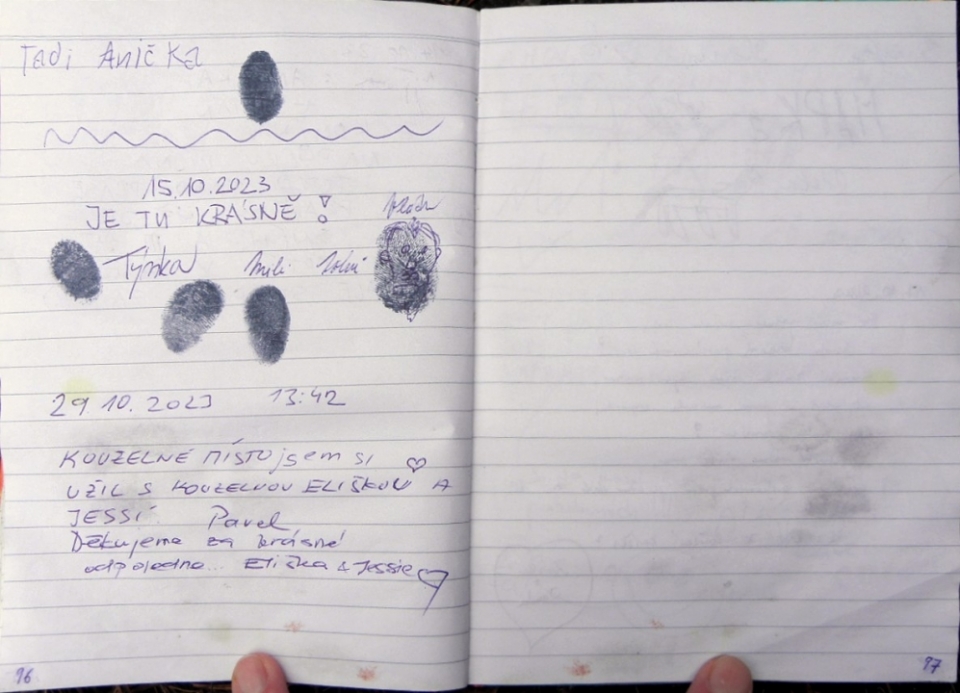 Tadi Anička
15.10.2023
JE TU KRÁSNĚ!
Týnka
29.10.2023 13:42
KOUZELNÉ MÍSTO jsem SI
UŽIL S KOUZELNOU ELIŠKOU A
JESSÍ. Pavel
Děkujeme za krásné
odpoledne... Eliška & Jessie
96
97